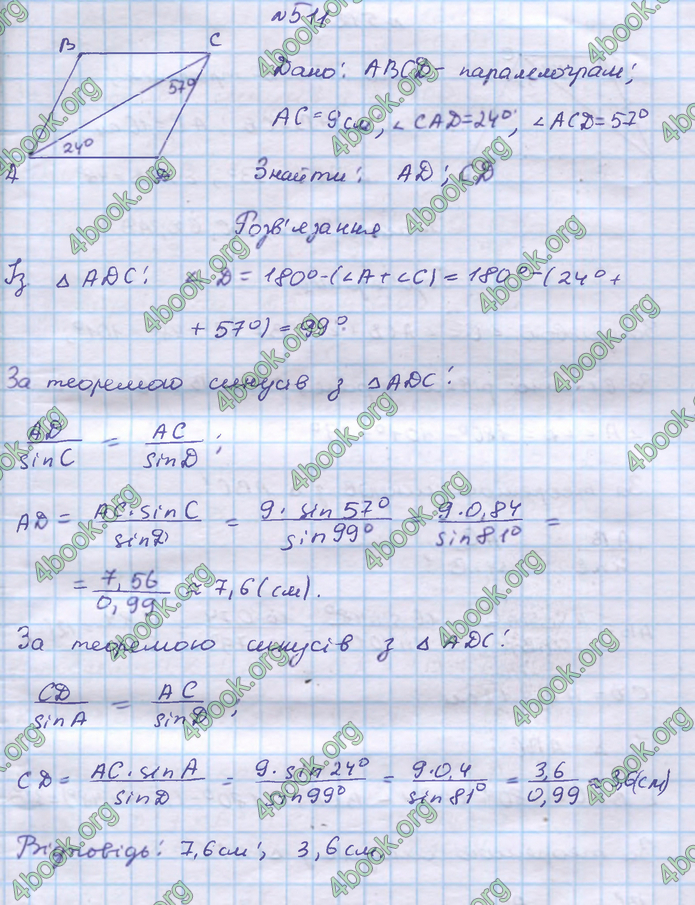 №511
B C
57°
24°
A D
Дано: ABCD - паралелограм;
AC = 9 см, ∠CAD = 24°, ∠ACD = 57°
Знайти: AD; CD
Розв'язання
Із △ADC: ∠D = 180° - (∠A + ∠C) = 180° - (24° +
+ 57°) = 99°
За теоремою синусів з △ADC:
AD/sin C = AC/sin D;
AD = AC·sin C/sin D = 9·sin 57°/sin 99° = 9·0,84/sin 81° =
= 7,56/0,99 ≈ 7,6 (см).
За теоремою синусів з △ADC:
CD/sin A = AC/sin D;
CD = AC·sin A/sin D = 9·sin 24°/sin 99° = 9·0,4/sin 81° = 3,6/0,99 ≈ 3,6 (см)
Відповідь: 7,6 см; 3,6 см.
4book.org